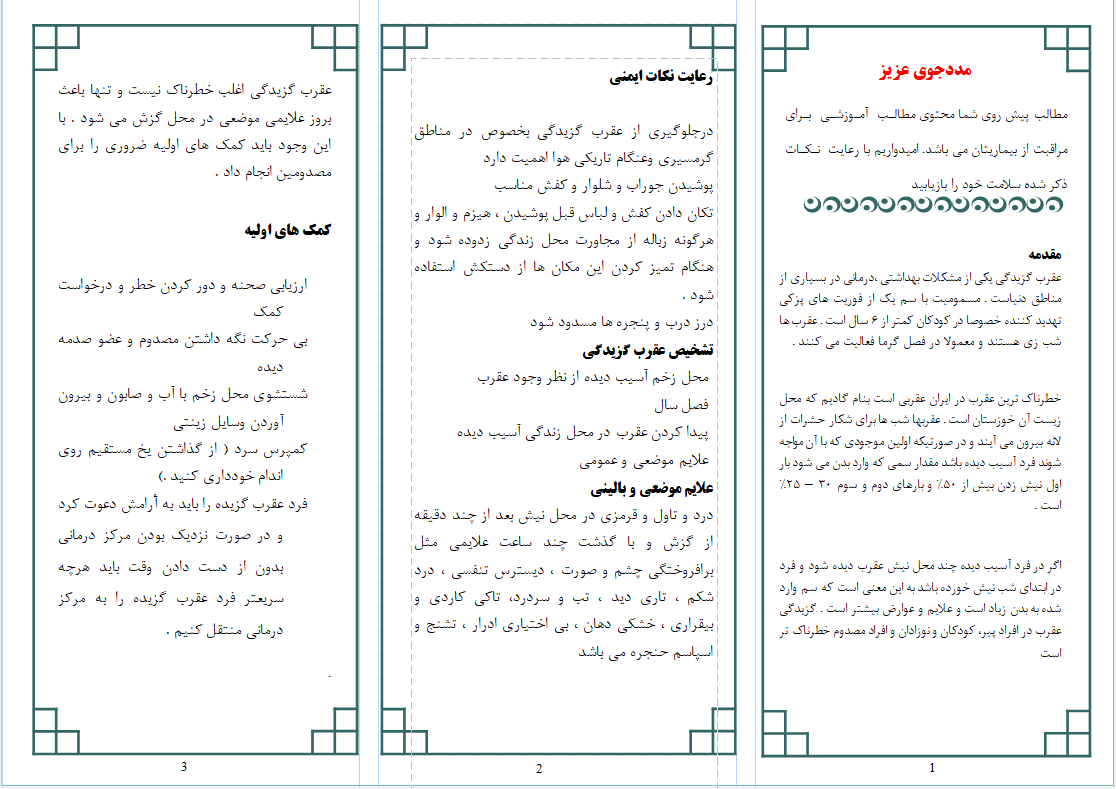 مددجوی عزیز
مطالب پیش روی شما محتوی مطالب آموزشی برای
مراقبت از بیماریتان می باشد. امیدواریم با رعایت نکات
ذکر شده سلامت خود را بازیابید
مقدمه
عقرب گزیدگی یکی از مشکلات بهداشتی ،درمانی در بسیاری از
مناطق دنیاست . مسمومیت با سم یک از فوریت های پزکی
تهدید کننده خصوصا در کودکان کمتر از ۶ سال است . عقرب ها
شب زی هستند و معمولا در فصل گرما فعالیت می کنند .
خطرناک ترین عقرب در ایران عقربی است بنام گادیم که محل
زیست آن خوزستان است . عقربها شب ها برای شکار حشرات از
لانه بیرون می آیند و در صورتیکه اولین موجودی که با آن مواجه
شوند فرد آسیب دیده باشد مقدار سمی که وارد بدن می شود بار
اول نیش زدن بیش از ۵۰% و بارهای دوم و سوم ۳۰ – ۲۵%
است .
اگر در فرد آسیب دیده چند محل نیش عقرب دیده شود و فرد
در ابتدای شب نیش خورده باشد به این معنی است که سم وارد
شده به بدن زیاد است و علایم و عوارض بیشتر است . گزیدگی
عقرب در افراد پیر، کودکان و نوزادان و افراد مصدوم خطرناک تر
است
1
رعایت نکات ایمنی
درجلوگیری از عقرب گزیدگی بخصوص در مناطق
گرمسیری وعنگام تاریکی هوا اهمیت دارد
پوشیدن جوراب و شلوار و کفش مناسب
تکان دادن کفش و لباس قبل پوشیدن ، هیزم و الوار و
هرگونه زباله از مجاورت محل زندگی زدوده شود و
هنگام تمیز کردن این مکان ها از دستکش استفاده
شود .
درز درب و پنجره ها مسدود شود
تشخیص عقرب گزیدگی
محل زخم آسیب دیده از نظر وجود عقرب
فصل سال
پیدا کردن عقرب در محل زندگی آسیب دیده
علایم موضعی و عمومی
علایم موضعی و بالینی
درد و تاول و قرمزی در محل نیش بعد از چند دقیقه
از گزش و با گذشت چند ساعت علایمی مثل
برافروختگی چشم و صورت ، دیسترس تنفسی ، درد
شکم ، تاری دید ، تب و سردرد، تاکی کاردی و
بیقراری ، خشکی دهان ، بی اختیاری ادرار ، تشنج و
اسپاسم حنجره می باشد
2
عقرب گزیدگی اغلب خطرناک نیست و تنها باعث
بروز علایمی موضعی در محل گزش می شود . با
این وجود باید کمک های اولیه ضروری را برای
مصدومین انجام داد .
کمک های اولیه
ارزیابی صحنه و دور کردن خطر و درخواست
کمک
بی حرکت نگه داشتن مصدوم و عضو صدمه
دیده
شستشوی محل زخم با آب و صابون و بیرون
آوردن وسایل زینتی
کمپرس سرد ( از گذاشتن یخ مستقیم روی
اندام خودداری کنید .)
فرد عقرب گزیده را باید به آرامش دعوت کرد
و در صورت نزدیک بودن مرکز درمانی
بدون از دست دادن وقت باید هرچه
سریعتر فرد عقرب گزیده را به مرکز
درمانی منتقل کنیم .
.
3